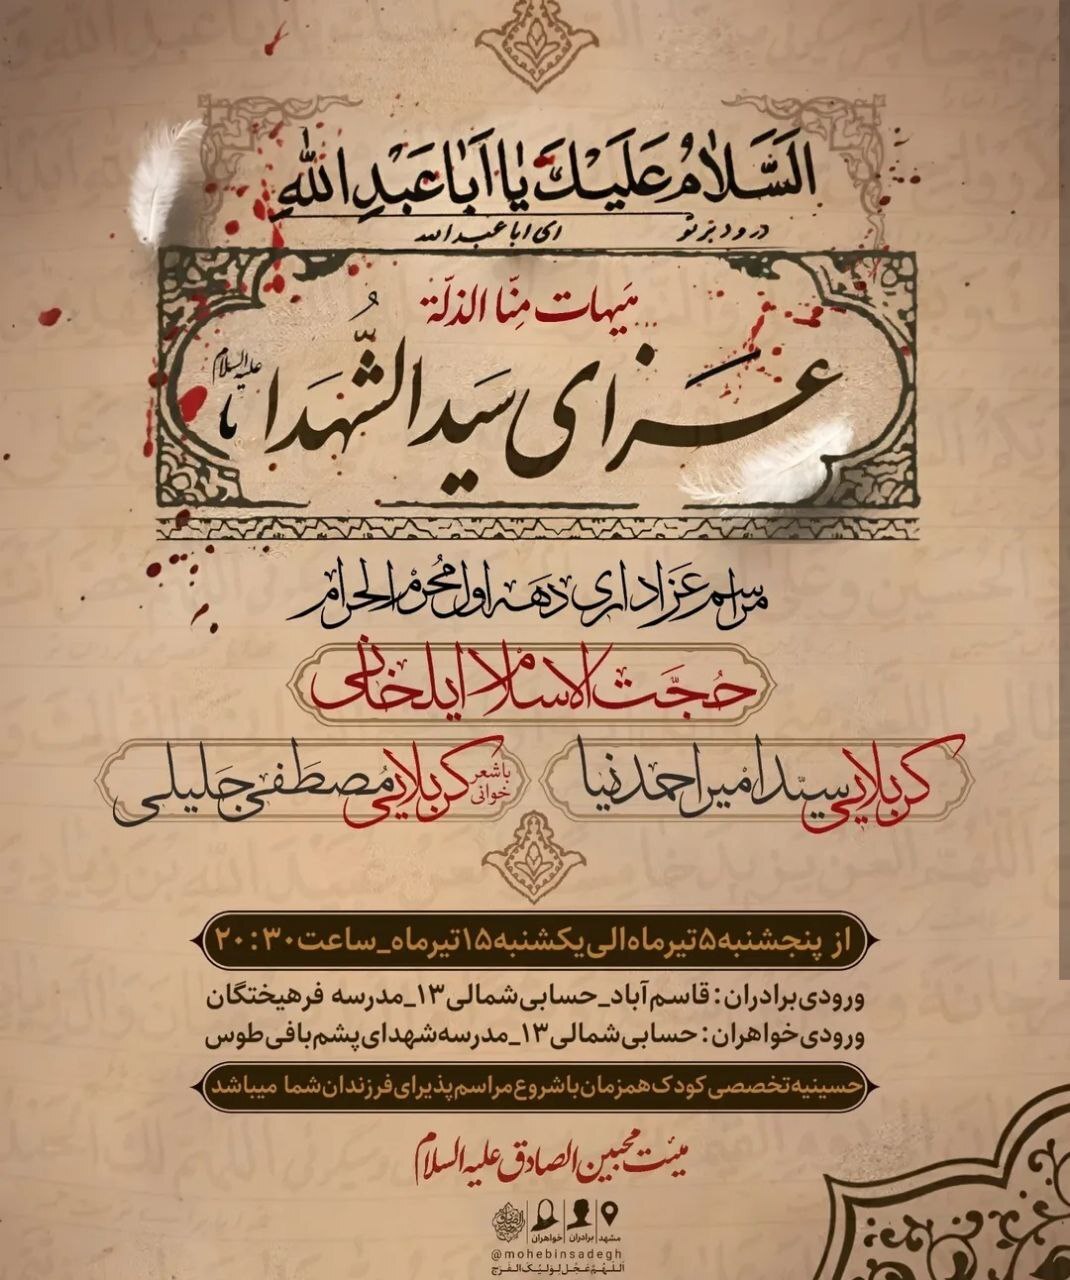 اَلسَّلامُ عَلَیْكَ یا اَباعَبْدِاللهِ
درود بر تو ای اباعبدالله
هَیهات مِنّا الذلّة
عزای سیدالشُّهَدا علیه‌السلام
مراسم عزاداری دهه اول محرم الحرام
حُجَّت الاسلام ایلخانی
کربلایی سیّد امیر احمدنیا
با شعر خوانی کربلایی مُصطَفی جَلیلی
از پنجشنبه ۵ تیر ماه الی یکشنبه ۱۵ تیر ماه_ساعت ۲۰:۳۰
ورودی برادران: قاسم آباد_حسابی شمالی ۱۳_مدرسه فرهیختگان
ورودی خواهران: حسابی شمالی ۱۳_مدرسه شهدای پشم بافی طوس
حسینیه تخصصی کودک همزمان با شروع مراسم پذیرای فرزندان شما میباشد
هیئت محبین الصادق علیه السلام
مشهد برادران خواهران
@mohebinsadegh
اَللّهُمَّ عَجِّل لِوَلیِّکَ الفَرَج